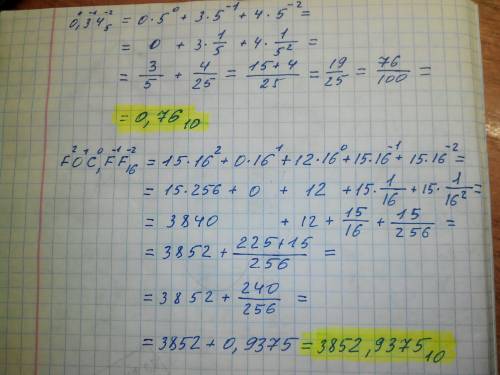 0,34₅ = 0·5⁰ + 3·5⁻¹ + 4·5⁻² =
= 0 + 3·1/5 + 4·1/5² =
= 3/5 + 4/25 = 15+4/25 = 19/25 = 76/100 =
= 0,76₁₀
F0C,FF₁₆ = 15·16² + 0·16¹ + 12·16⁰ + 15·16⁻¹ + 15·16⁻² =
= 15·256 + 0 + 12 + 15·1/16 + 15·1/16² =
= 3840 + 12 + 15/16 + 15/256 =
= 3852 + 225+15/256 =
= 3852 + 240/256 =
= 3852 + 0,9375 = 3852,9375₁₀